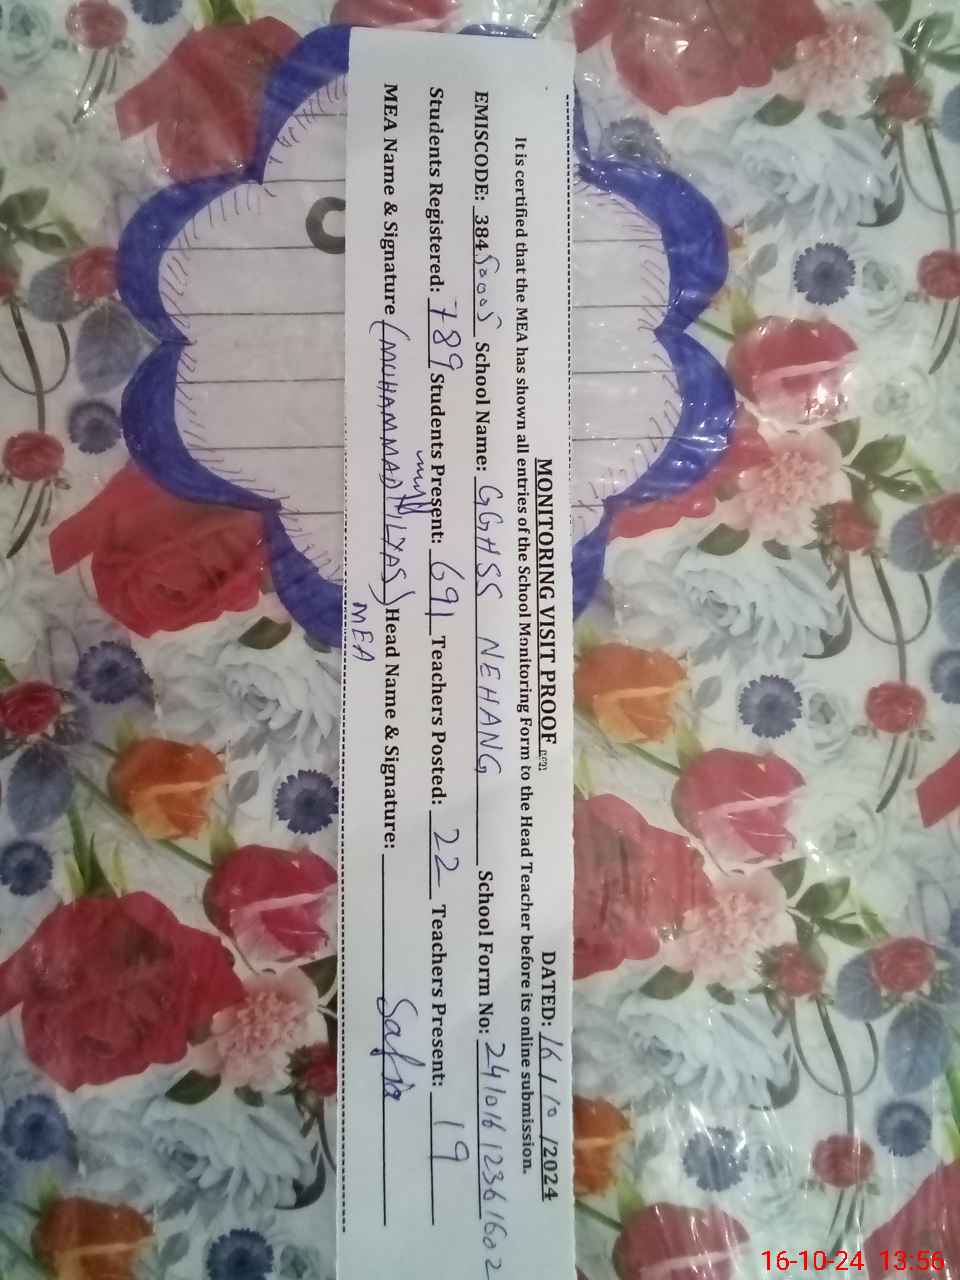 MONITORING VISIT PROOF
DATED: 16/10/2024
It is certified that the MEA has shown all entries of the School Monitoring Form to the Head Teacher before its online submission.
EMISCODE: 38450005 School Name: GGHSS NEHANG School Form No: 24101612361602
Students Registered: 789 Students Present: 691 Teachers Posted: 22 Teachers Present: 19
MEA Name & Signature (MUHAMMAD ILYAS) Head Name & Signature: Safia
MEA
16-10-24 13:56